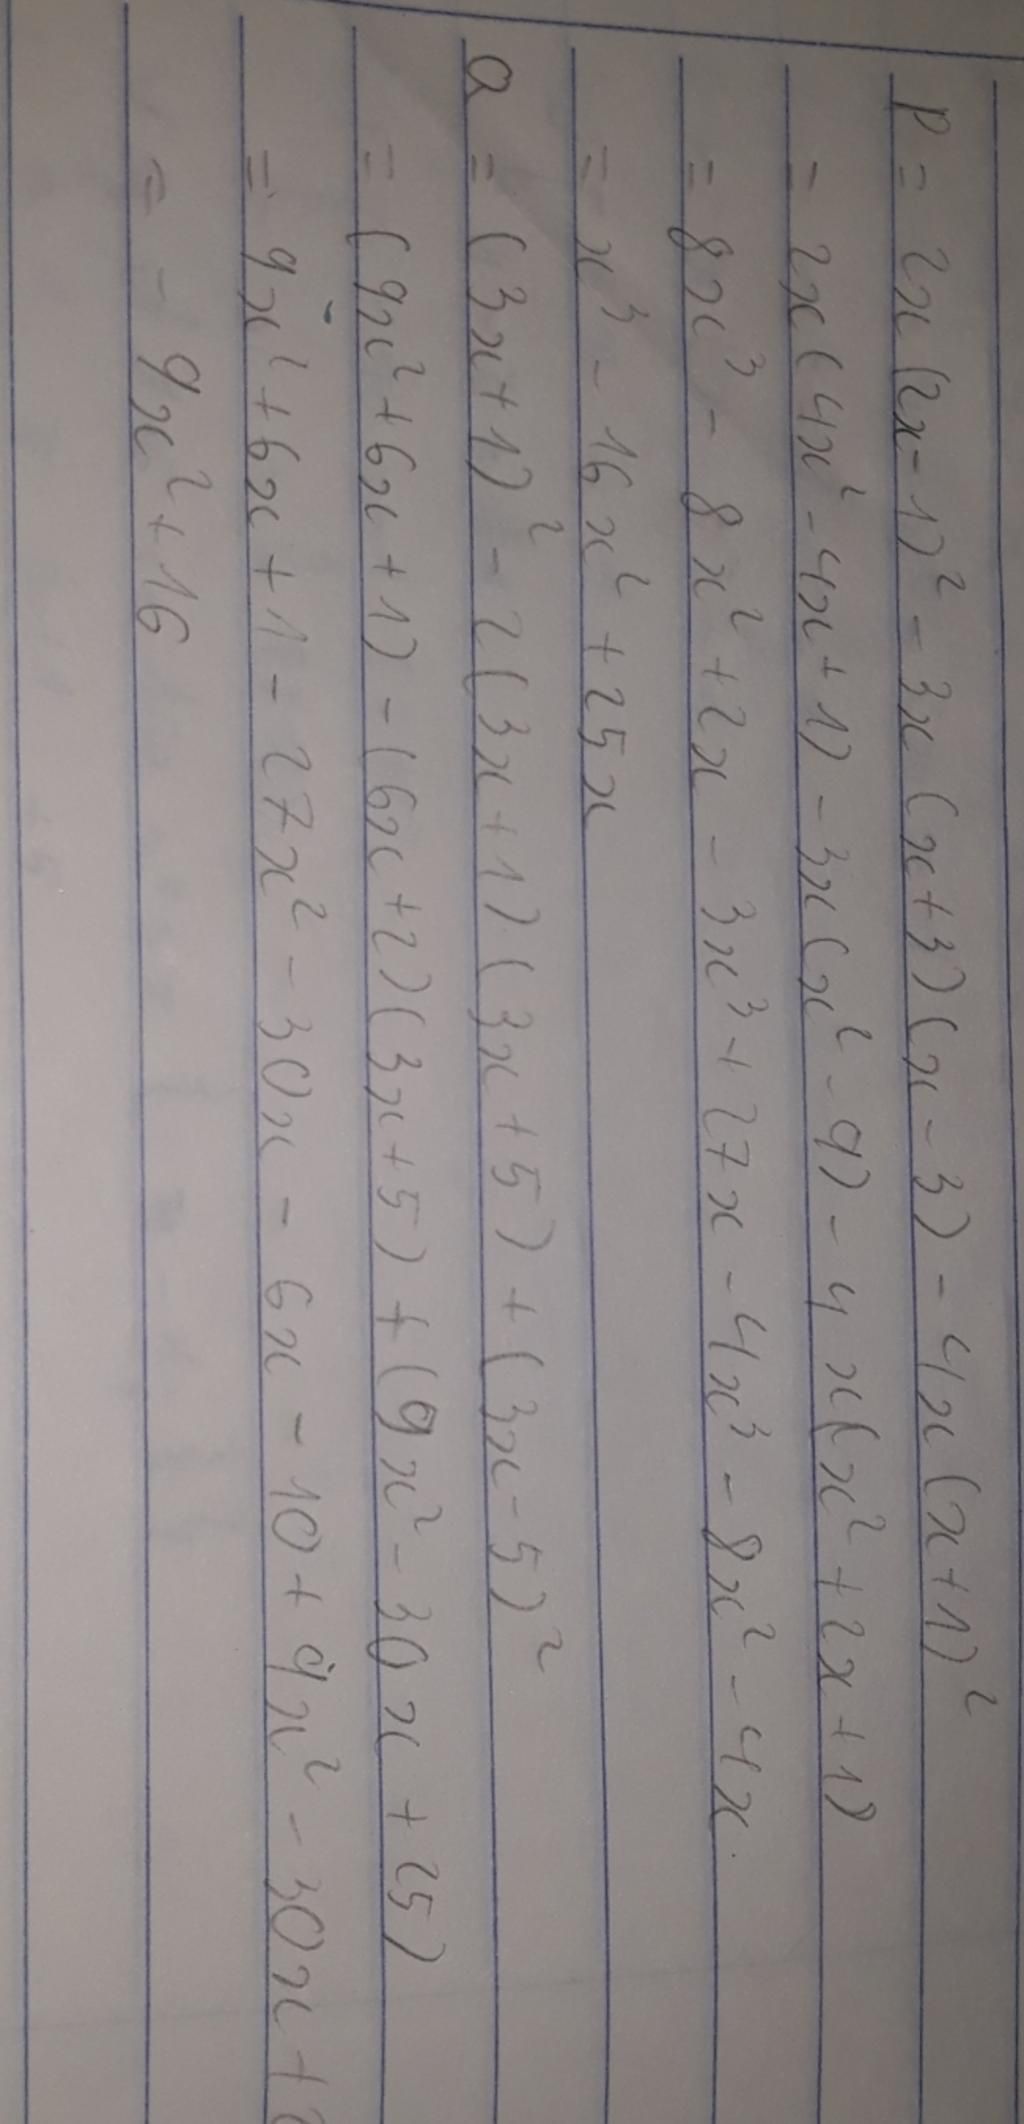 P = 2x(2x-1)² - 3x(x+3)(x-3) - 4x(x+1)²
= 2x(4x² - 4x + 1) - 3x(x² - 9) - 4x(x² + 2x + 1)
= 8x³ - 8x² + 2x - 3x³ + 27x - 4x³ - 8x² - 4x
= x³ - 16x² + 25x
Q = (3x+1)² - 2(3x+1)(3x+5) + (3x-5)²
= (9x² + 6x + 1) - (6x+2)(3x+5) + (9x² - 30x + 25)
= 9x² + 6x + 1 - 27x² - 30x - 6x - 10 + 9x² - 30x + 2
= - 9x² + 16